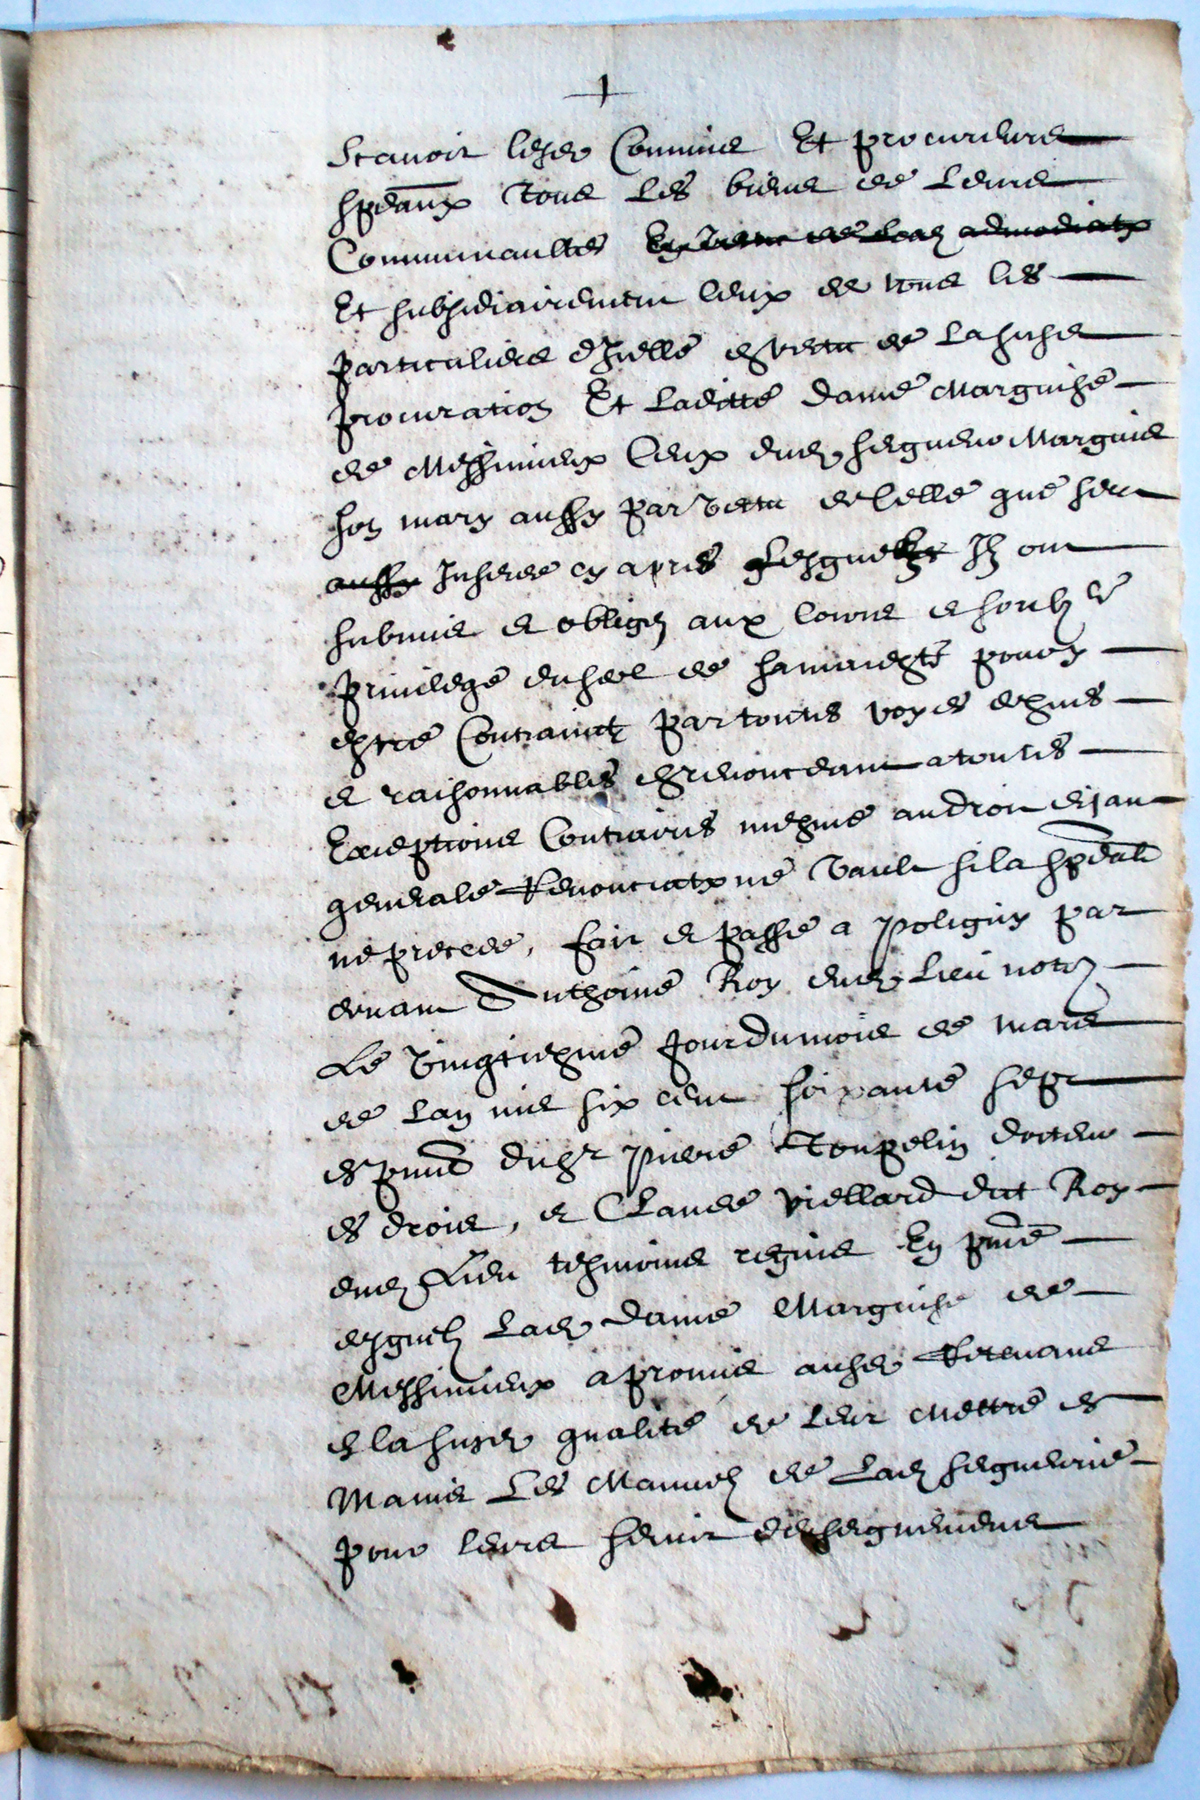 Scavoir lesd Commis Et procureurs
speaux tous Les biens de Leurs
Communaultes
Et subsidiairement Ceux de tous les
particuliers d'Icelle en vertu de La susd
procuration Et Laditte dame Marquise
de Messimieux Ceux dud seigneur Marquis
son mary aussy par vertu de Celle que sera
aussy Inseree cy apres Lesquelz Ilz ont
submis et obligez aux Cours et soubz le
privilege du seel de sa majeste pour y
estre Contrainct par toutes voyes dehues
et raisonnables en renonceant a toutes
Exceptions Contraires mesme au droit disant
generale Renonciatx ne Vault si la speale
ne precede, fait et passe a poligny par
devant Anthoine Roy dud Lieu notre
Le Vingtiesme Jour du mois de mars
de Lan mil six cent soixante sept
es pnces du sr Pierre Toupelin docteur
es drois, et Claude Viellard dit Roy
dud Lieu tesmoins requis En pnce
desquelz Lad Dame Marquise de
Messimieux a promis ausd Retenans
en la susd qualite de Leur Mettre es
Mains Les Manuelz de Lad seigneurie
pour Leurs servir d'enseignemens